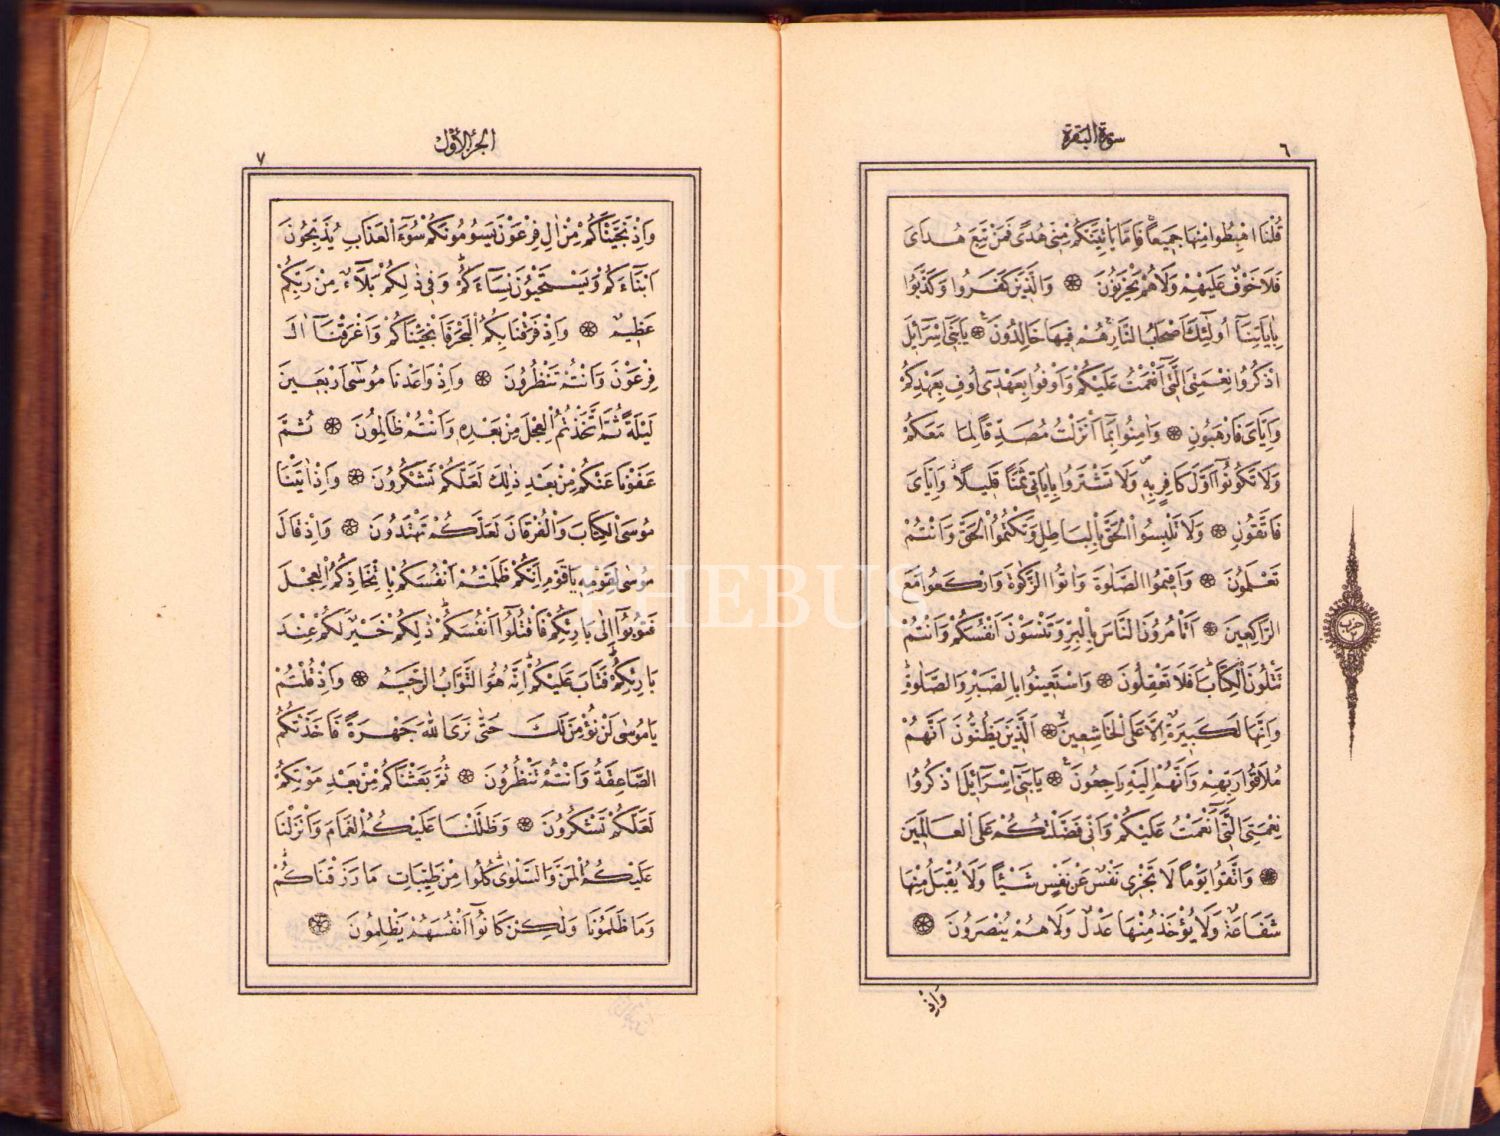 سورة البقرة
٦
قُلْنَا اهْبِطُوا مِنْهَا جَمِيعاً فَاِمَّا يَاْتِيَنَّكُمْ مِنِّى هُدًى فَمَنْ تَبِعَ هُدَاىَ
فَلَا خَوْفٌ عَلَيْهِمْ وَلَا هُمْ يَحْزَنُونَ ۞ وَالَّذِينَ كَفَرُوا وَكَذَّبُوا
بِاٰيَاتِنَٓا اُولٰٓئِكَ اَصْحَابُ النَّارِ هُمْ فِيهَا خَالِدُونَ ۞ يَابَنِٓى اِسْرَٓائِيلَ
اذْكُرُوا نِعْمَتِىَ الَّتِٓى اَنْعَمْتُ عَلَيْكُمْ وَاَوْفُوا بِعَهْدِٓى اُوفِ بِعَهْدِكُمْ
وَاِيَّاىَ فَارْهَبُونِ ۞ وَاٰمِنُوا بِمَٓا اَنْزَلْتُ مُصَدِّقًا لِمَا مَعَكُمْ
وَلَا تَكُونُٓوا اَوَّلَ كَافِرٍ بِهٖ وَلَا تَشْتَرُوا بِاٰيَاتِى ثَمَنًا قَلِيلًا وَاِيَّاىَ
فَاتَّقُونِ ۞ وَلَا تَلْبِسُوا الْحَقَّ بِالْبَاطِلِ وَتَكْتُمُوا الْحَقَّ وَاَنْتُمْ
تَعْلَمُونَ ۞ وَاَقِيمُوا الصَّلٰوةَ وَاٰتُوا الزَّكٰوةَ وَارْكَعُوا مَعَ
الرَّاكِعِينَ ۞ اَتَاْمُرُونَ النَّاسَ بِالْبِرِّ وَتَنْسَوْنَ اَنْفُسَكُمْ وَاَنْتُمْ
تَتْلُونَ الْكِتَابَ اَفَلَا تَعْقِلُونَ ۞ وَاسْتَعِينُوا بِالصَّبْرِ وَالصَّلٰوةِ
وَاِنَّهَا لَكَبِيرَةٌ اِلَّا عَلَى الْخَاشِعِينَ ۞ اَلَّذِينَ يَظُنُّونَ اَنَّهُمْ
مُلَاقُوا رَبِّهِمْ وَاَنَّهُمْ اِلَيْهِ رَاجِعُونَ ۞ يَابَنِٓى اِسْرَٓائِيلَ اذْكُرُوا
نِعْمَتِىَ الَّتِٓى اَنْعَمْتُ عَلَيْكُمْ وَاَنِّى فَضَّلْتُكُمْ عَلَى الْعَالَمِينَ
۞ وَاتَّقُوا يَوْمًا لَا تَجْزِى نَفْسٌ عَنْ نَفْسٍ شَيْئًا وَلَا يُقْبَلُ مِنْهَا
شَفَاعَةٌ وَلَا يُؤْخَذُ مِنْهَا عَدْلٌ وَلَا هُمْ يُنْصَرُونَ ۞
وَاِذْ
حزب
الجزء الأول
٧
وَاِذْ نَجَّيْنَاكُمْ مِنْ اٰلِ فِرْعَوْنَ يَسُومُونَكُمْ سُوٓءَ الْعَذَابِ يُذَبِّحُونَ
اَبْنَٓاءَكُمْ وَيَسْتَحْيُونَ نِسَٓاءَكُمْ وَفِى ذٰلِكُمْ بَلَٓاءٌ مِنْ رَبِّكُمْ
عَظِيمٌ ۞ وَاِذْ فَرَقْنَا بِكُمُ الْبَحْرَ فَاَنْجَيْنَاكُمْ وَاَغْرَقْنَٓا اٰلَ
فِرْعَوْنَ وَاَنْتُمْ تَنْظُرُونَ ۞ وَاِذْ وَاعَدْنَا مُوسٰٓى اَرْبَعِينَ
لَيْلَةً ثُمَّ اتَّخَذْتُمُ الْعِجْلَ مِنْ بَعْدِهٖ وَاَنْتُمْ ظَالِمُونَ ۞ ثُمَّ
عَفَوْنَا عَنْكُمْ مِنْ بَعْدِ ذٰلِكَ لَعَلَّكُمْ تَشْكُرُونَ ۞ وَاِذْ اٰتَيْنَا
مُوسَى الْكِتَابَ وَالْفُرْقَانَ لَعَلَّكُمْ تَهْتَدُونَ ۞ وَاِذْ قَالَ
مُوسٰى لِقَوْمِهٖ يَاقَوْمِ اِنَّكُمْ ظَلَمْتُمْ اَنْفُسَكُمْ بِاتِّخَاذِكُمُ الْعِجْلَ
فَتُوبُٓوا اِلٰى بَارِئِكُمْ فَاقْتُلُٓوا اَنْفُسَكُمْ ذٰلِكُمْ خَيْرٌ لَكُمْ عِنْدَ
بَارِئِكُمْ فَتَابَ عَلَيْكُمْ اِنَّهُ هُوَ التَّوَّابُ الرَّحِيمُ ۞ وَاِذْ قُلْتُمْ
يَامُوسٰى لَنْ نُؤْمِنَ لَكَ حَتّٰى نَرَى اللّٰهَ جَهْرَةً فَاَخَذَتْكُمُ
الصَّاعِقَةُ وَاَنْتُمْ تَنْظُرُونَ ۞ ثُمَّ بَعَثْنَاكُمْ مِنْ بَعْدِ مَوْتِكُمْ
لَعَلَّكُمْ تَشْكُرُونَ ۞ وَظَلَّلْنَا عَلَيْكُمُ الْغَمَامَ وَاَنْزَلْنَا
عَلَيْكُمُ الْمَنَّ وَالسَّلْوٰى كُلُوا مِنْ طَيِّبَاتِ مَا رَزَقْنَاكُمْ
وَمَا ظَلَمُونَا وَلٰكِنْ كَانُٓوا اَنْفُسَهُمْ يَظْلِمُونَ ۞
THEBUS